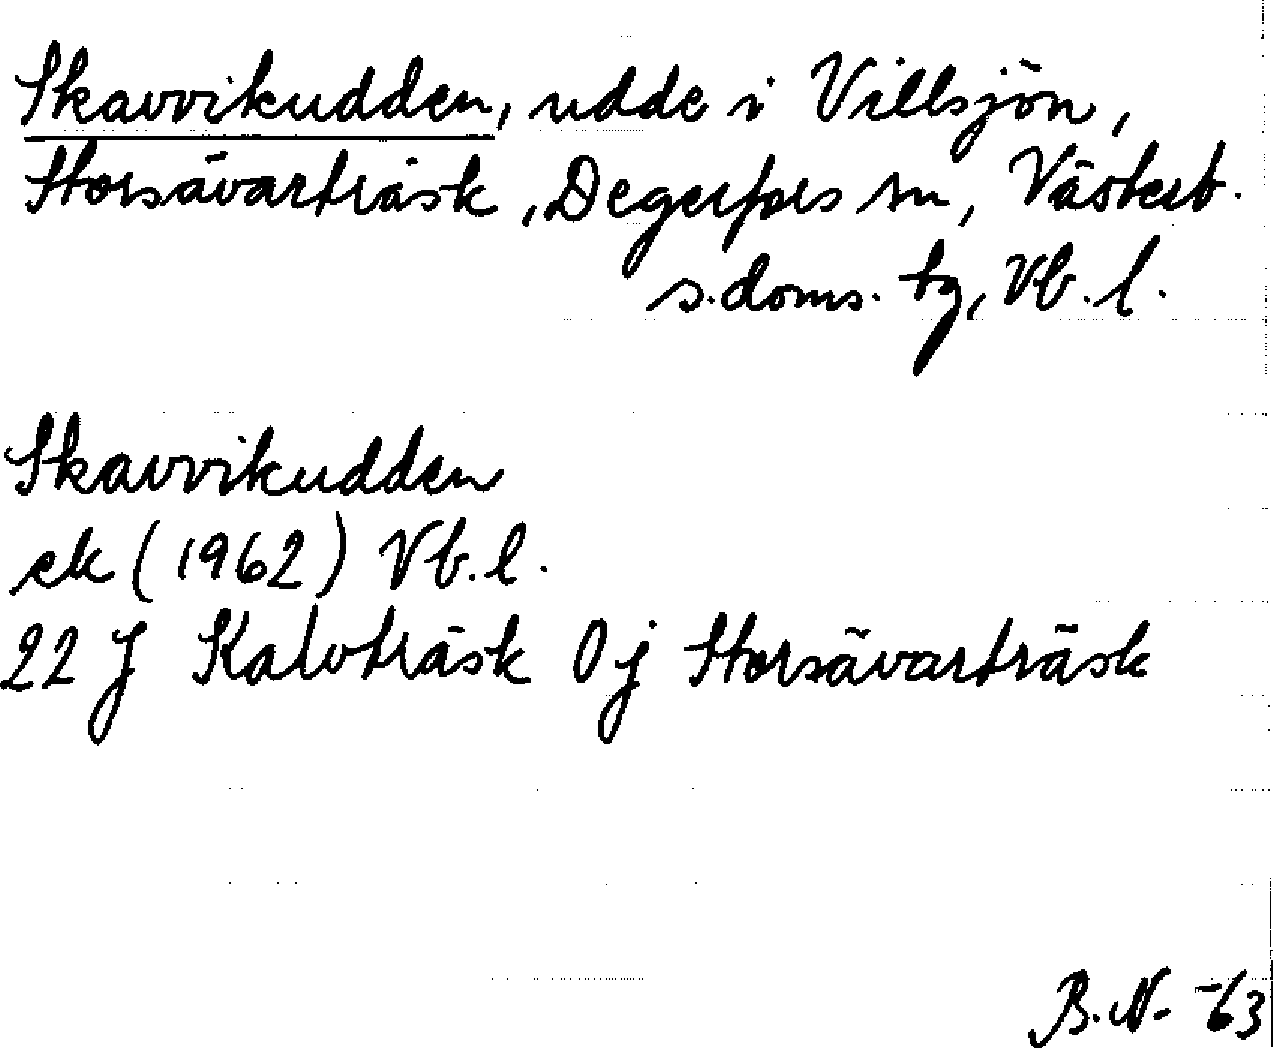 Skavvikudden, udde i Villsjön,
Storsävarträsk, Degerfors sn, Västerb.
s. doms. tg, Vb. l.
Skavvikudden
ek (1962) Vb. l.
22 J Kalvträsk 0 j Storsävarträsk
B. N. -63